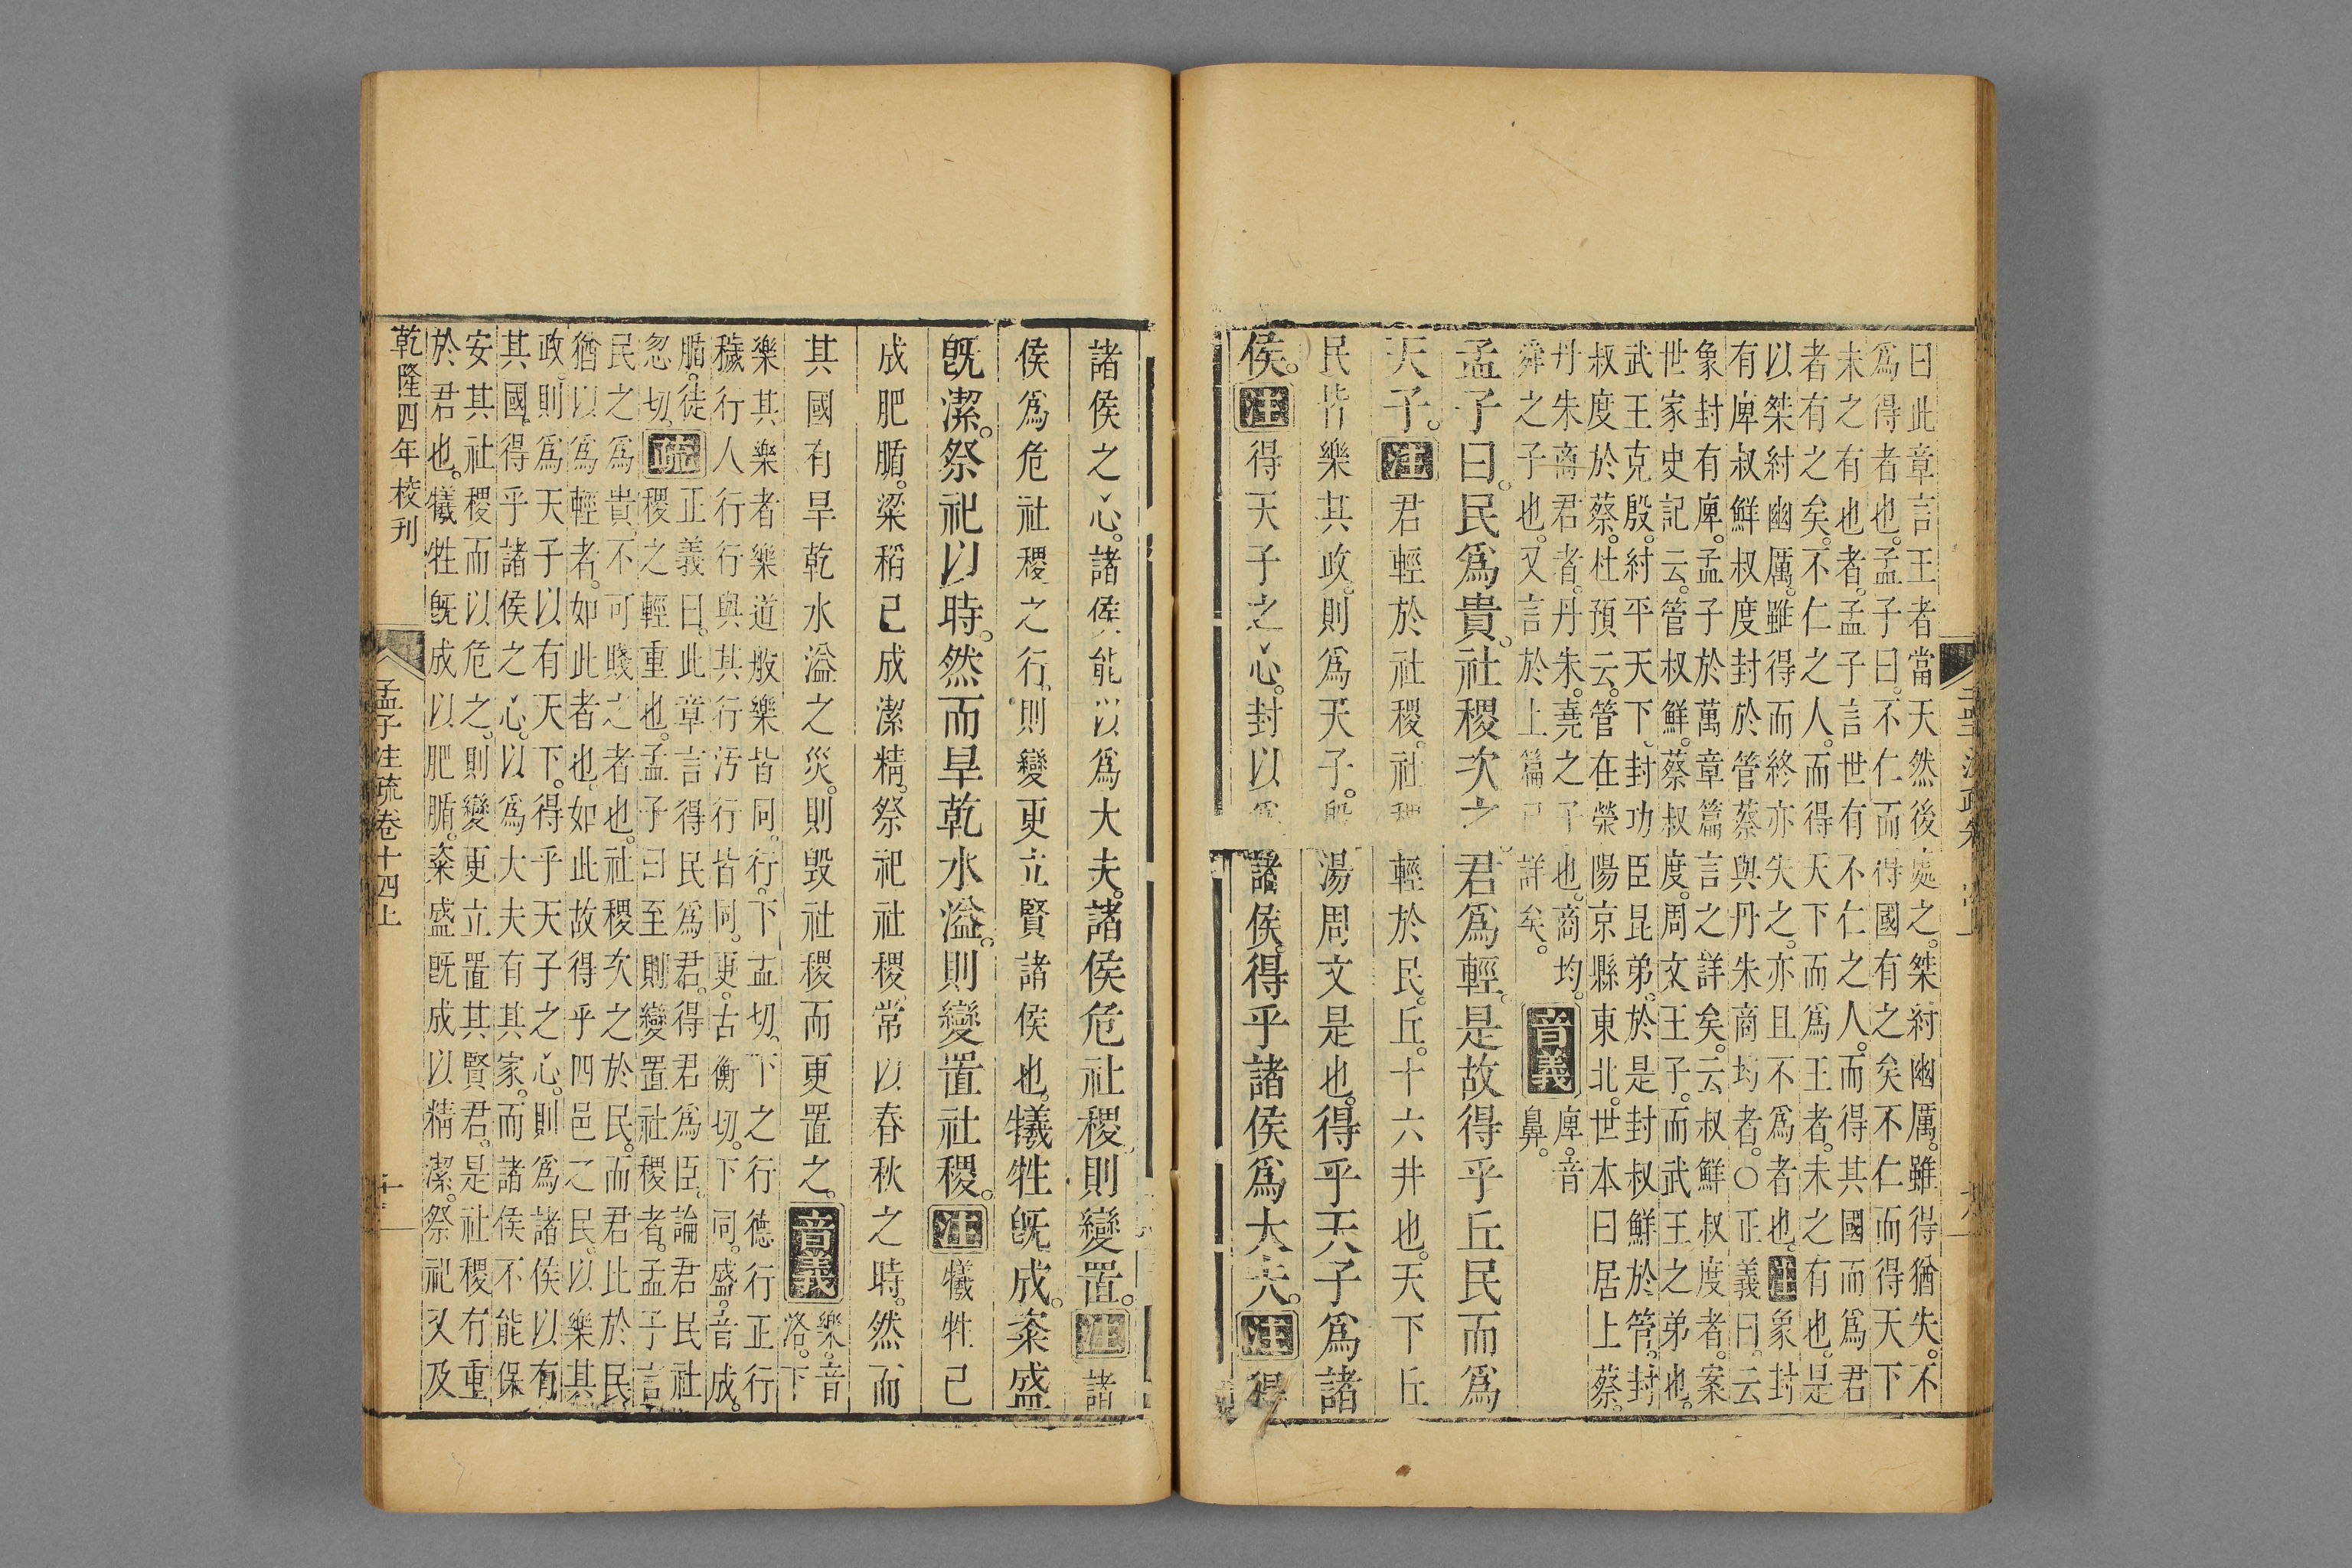 曰此章言王者當天然後處之。桀紂幽厲。雖得猶失。不
爲得者也。孟子曰。不仁而得國有之矣不仁而得天下
未之有也者。孟子言世有不仁之人。而得其國而爲君
者有之矣。不仁之人。而得天下而爲王者。未之有也。是
以桀紂幽厲。雖得而終亦失之。亦且不爲者也。注象封
有庳叔鮮叔度封於管蔡與丹朱商均者。○正義曰。云
象封有庳。孟子於萬章篇言之詳矣。云叔鮮叔度者。案
世家史記云。管叔鮮。蔡叔度。周文王子。而武王之弟也。
武王克殷。紂平天下。封功臣昆弟。於是封叔鮮於管。封
叔度於蔡。杜預云。管在榮陽京縣東北。世本曰居上蔡。
丹朱商君者。丹朱。堯之子也。商均。
舜之子也。又言於上篇詳矣。
音義
庳。音
鼻。
孟子曰。民爲貴。社稷次之君爲輕。是故得乎丘民而爲
天子。注君輕於社稷。社稷輕於民。丘。十六井也。天下丘
民皆樂其政。則爲天子。殷湯周文是也。得乎天子爲諸
侯。注得天子之心。封以爲諸侯。得乎諸侯爲大夫。注得
諸侯之心。諸侯能以爲大夫。諸侯危社稷。則變置。注諸
侯爲危社稷之行。則變更立賢諸侯也。犧牲旣成。粢盛
旣潔。祭祀以時。然而旱乾水溢。則變置社稷。注犧牲已
成肥腯。粱稻已成潔精。祭祀社稷常以春秋之時。然而
其國有旱乾水溢之災。則毀社稷而更置之。音義
樂。音
洛。下
樂其樂者樂道般樂皆同。行。下孟切。下之行德行正行
穢行人行行與其行行汚行皆同。更。古衡切。下同。盛。音成。
腯。徒
忽切。
疏
正義曰。此章言得民爲君。得君爲臣。論君民社
稷之輕重也。孟子曰至則變置社稷者。孟子言
民之爲貴。不可賤之者也。社稷次之於民。而君比於民
猶以爲輕者。如此者也。如此故得乎四邑之民。以樂其
政。則爲天子以有天下。得乎天子之心。則爲諸侯以有
其國。得乎諸侯之心。以爲大夫有其家。而諸侯不能保
安其社稷而以危之。則變更立置其賢君。是社稷有重
於君也。犧牲旣成以肥腯。粢盛旣成以精潔。祭祀又及
乾隆四年校刊
孟子注疏卷十四上